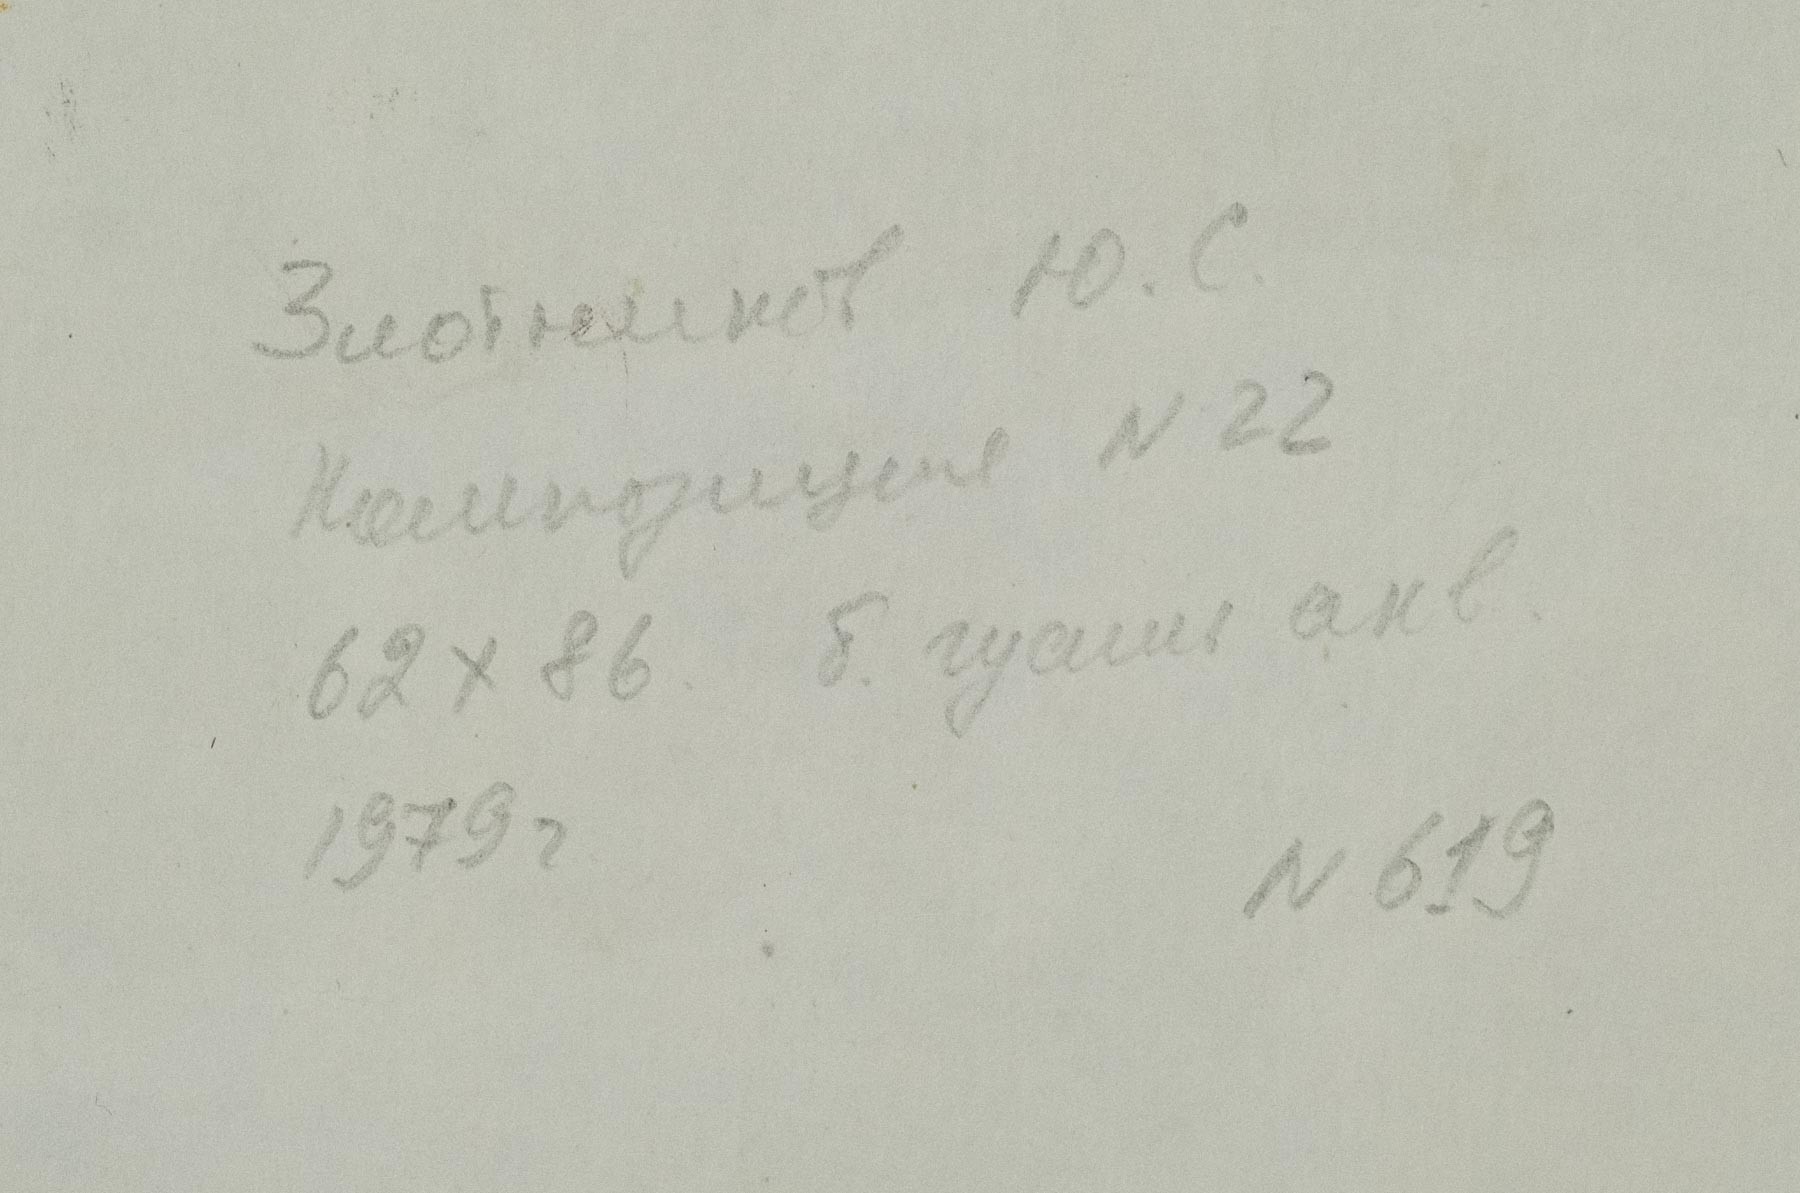 Злотников Ю. С.
Композиция N 22
62 х 86. б. гуашь акв.
1979 г
N 619